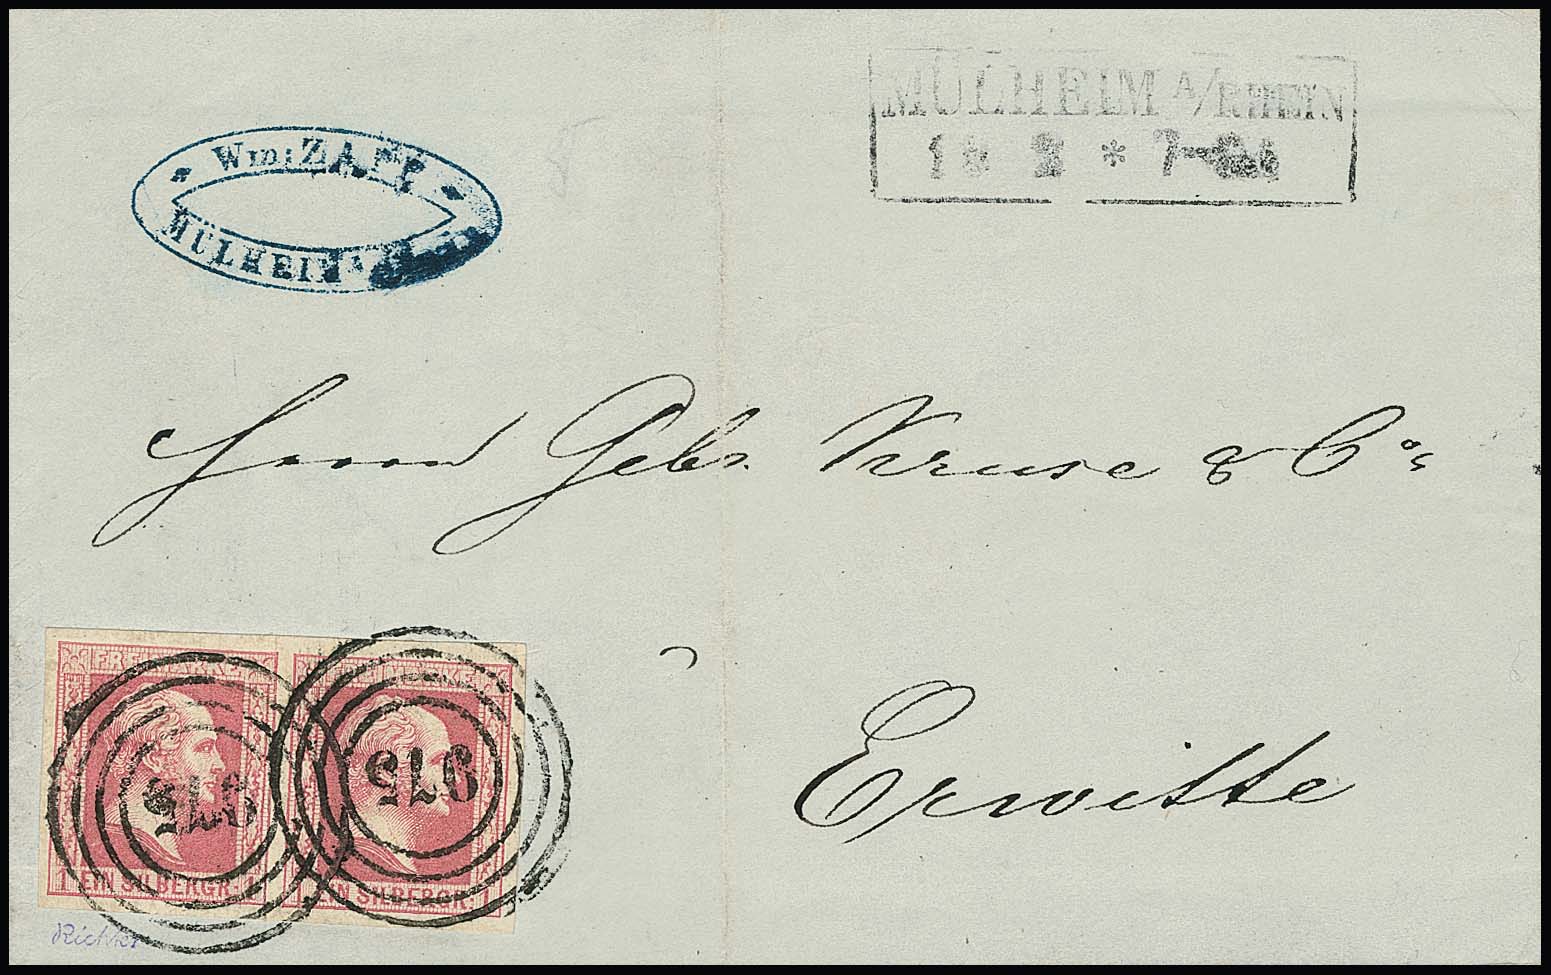 Wm: ZAPP
MÜLHEIM
MÜLHEIM A/RHEIN
18 2 * 7-8
Herrn Gebr. Kruse & Cos
Erwitte
FREIMARKE
1 EIN SILBERGR. 1
975
FREIMARKE
1 EIN SILBERGR. 1
975
Richter